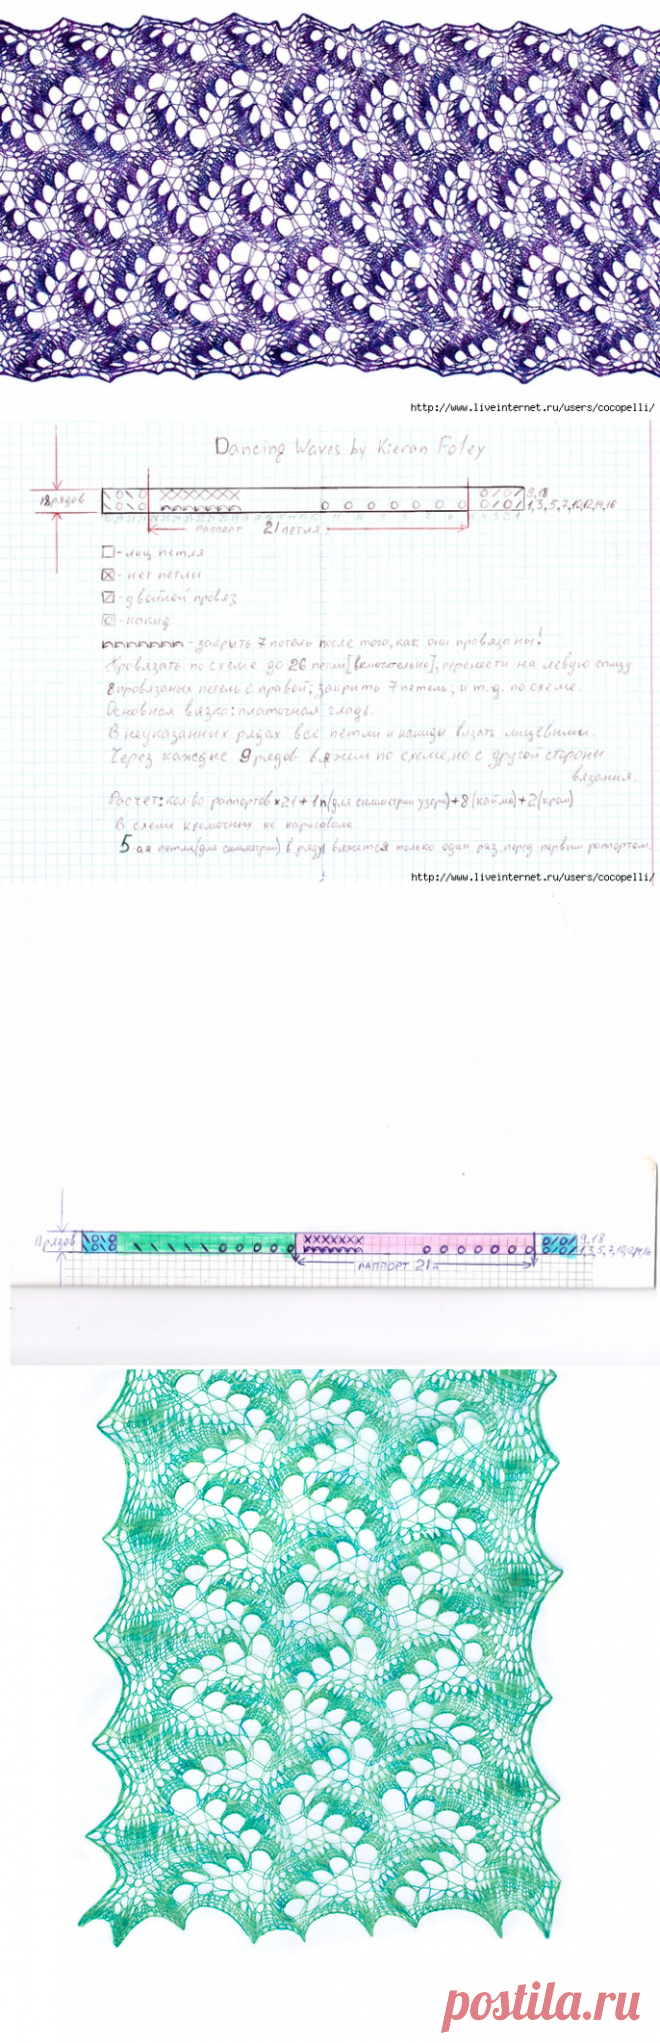 http://www.liveinternet.ru/users/cocopelli/
Dancing Waves by Kieran Foley
18 рядов
9,18
1,3,5,7,10,12,14,16
раппорт 21 петля
- лиц петля
- нет петли
- двойной провяз
- накид
- закрыть 7 петель после того, как они провязаны!
Провязать по схеме до 26 петли [включительно], перенести на левую спицу
8 провязаных петель с правой; закрыть 7 петель; и т.д. по схеме.
Основная вязка: платочная гладь.
В неуказанных рядах все петли и накиды вязать лицевыми.
Через каждые 9 рядов вяжем по схеме, но с другой стороны
вязания.
Расчет: кол-во раппортов x21+1п(для симметрии узора)+8(кайма)+2(кром)
В схеме кромочных не нарисовала
5-ая петля(для симметрии) в ряду вяжется только один раз, перед первым раппортом.
http://www.liveinternet.ru/users/cocopelli/
18 рядов
9,18
1,3,5,7,10,12,14,16
РАППОРТ 21п
postila.ru